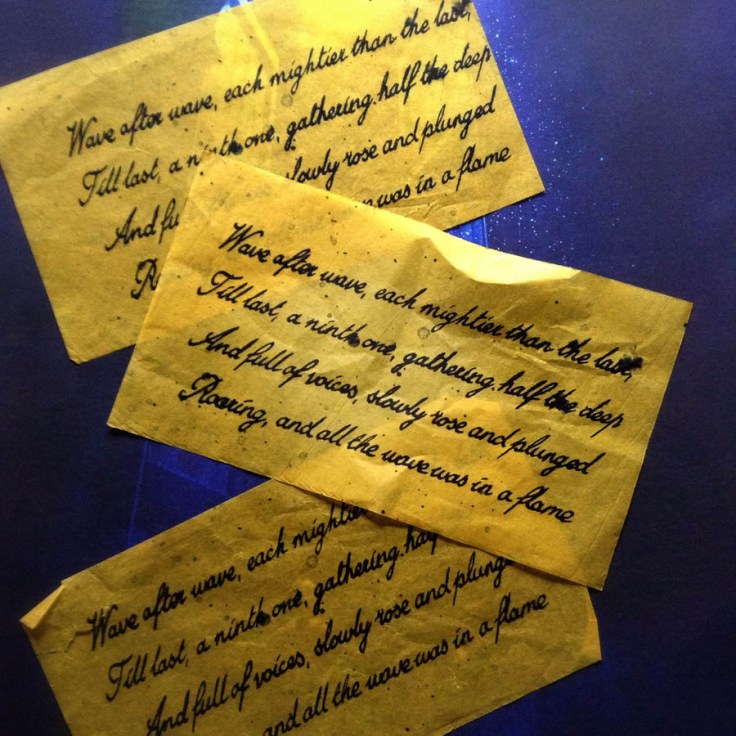 Wave after wave, each mightier than the last,
Till last, a ninth one, gathering half the deep
And fu slowly rose and plunged
R was in a flame
Wave after wave, each mightier than the last,
Till last, a ninth one, gathering half the deep
And full of voices, slowly rose and plunged
Roaring, and all the wave was in a flame
Wave after wave, each mightie
Till last, a ninth one, gathering ha
And full of voices, slowly rose and plung
and all the wave was in a flame